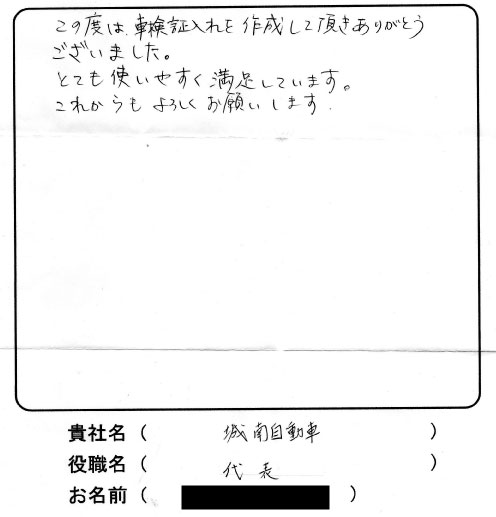 この度は、車検証入れを作成して頂きありがとう
ございました。
とても使いやすく満足しています。
これからもよろしくお願いします.
貴社名（ 城南自動車 ）
役職名（ 代表 ）
お名前（ ）